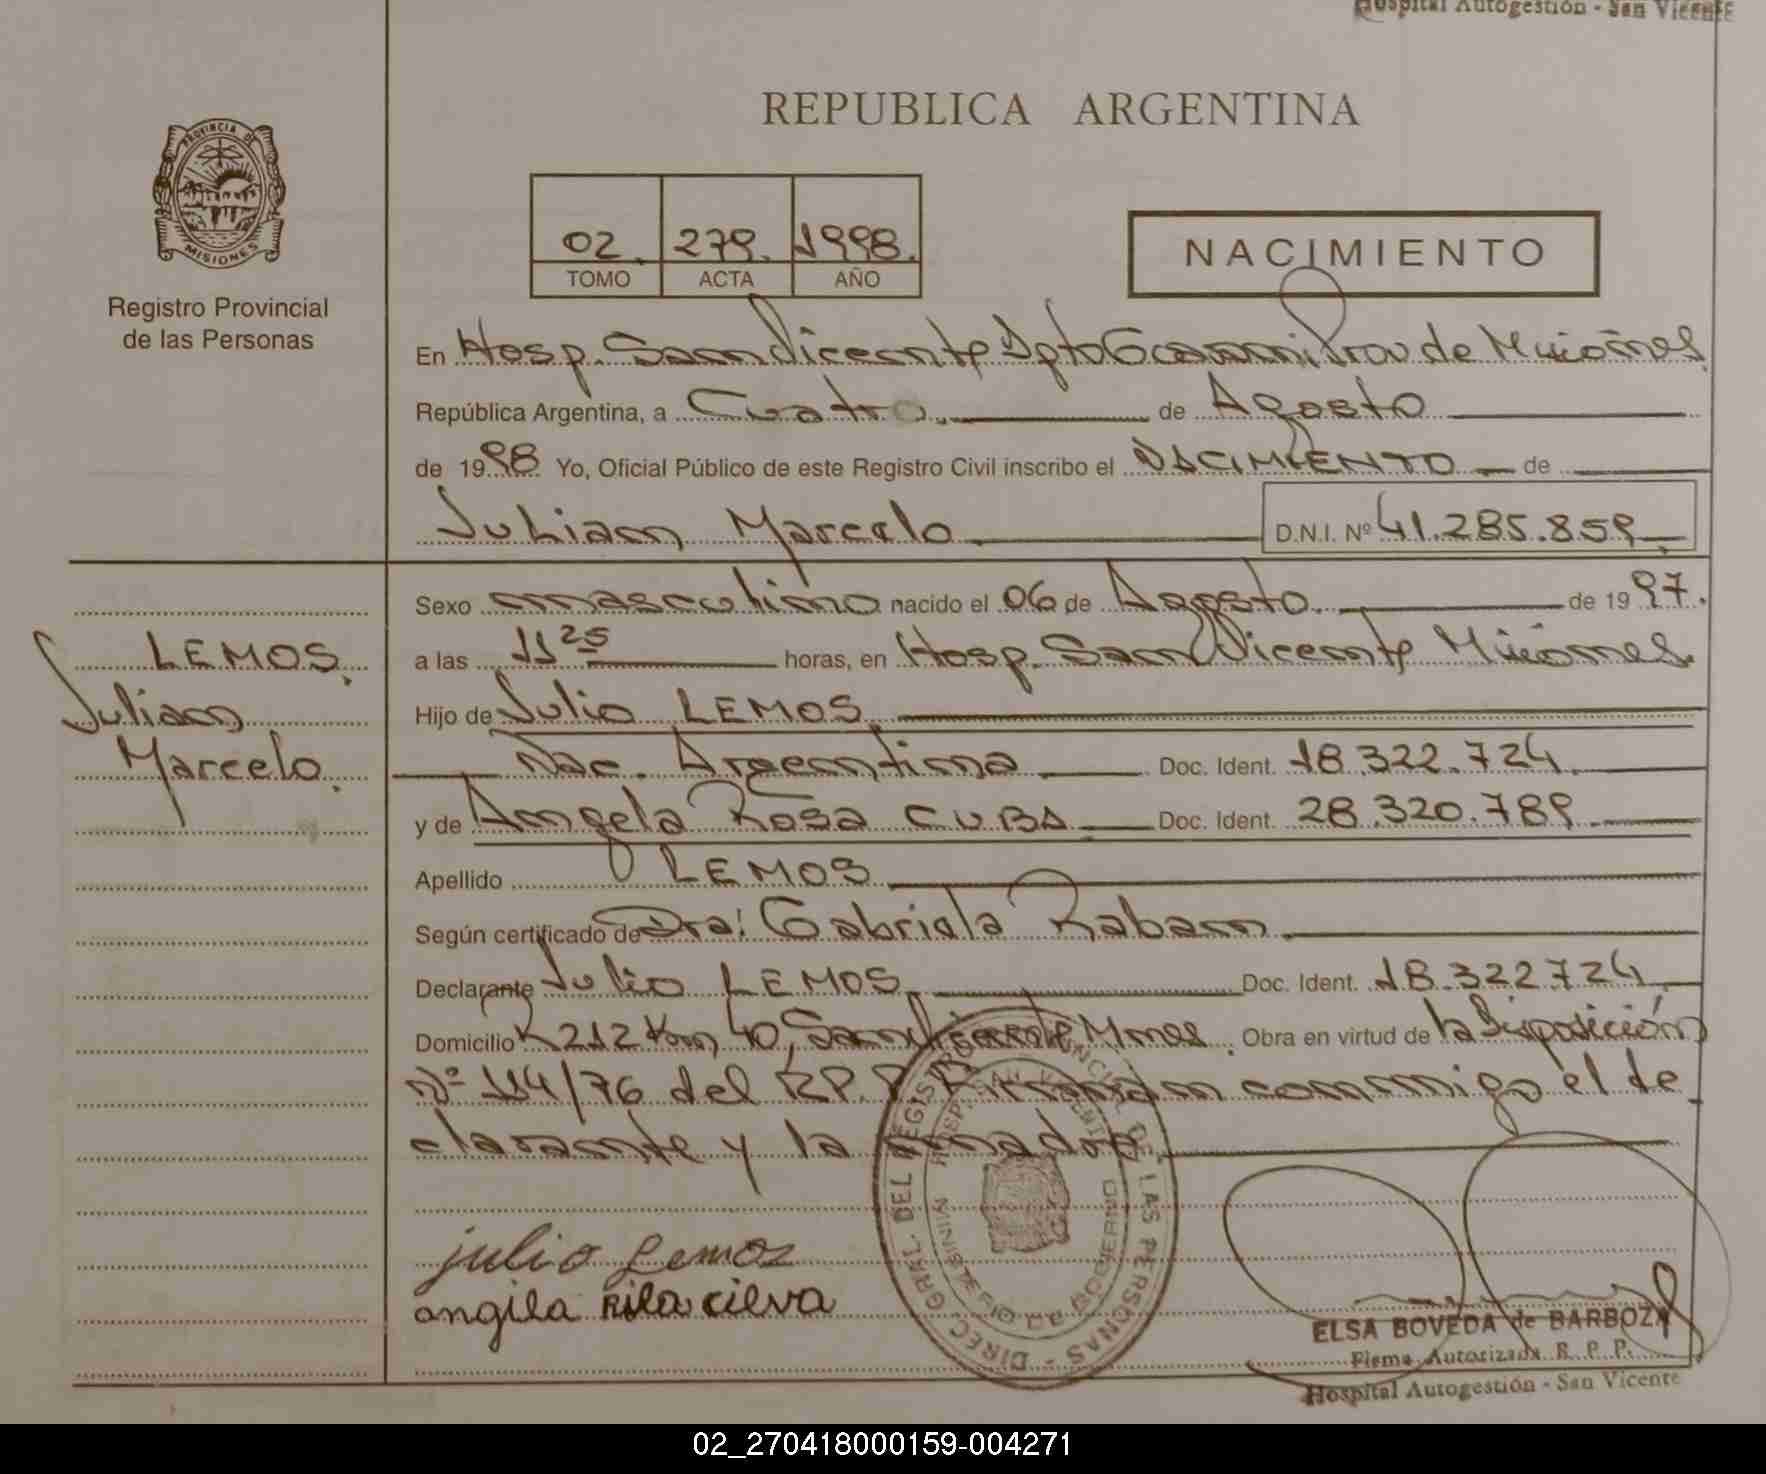 Hospital Autogestión - San Vicente
REPUBLICA ARGENTINA
PROVINCIA DE
MISIONES
Registro Provincial
de las Personas
02. 279. 1998.
TOMO ACTA AÑO
NACIMIENTO
En Hosp. San Vicente Dpto Guaraní Prov de Misiones
República Argentina, a Cuatro. de Agosto
de 1998 Yo, Oficial Público de este Registro Civil inscribo el NACIMIENTO de
Julian Marcelo D.N.I. Nº 41.285.859
Sexo masculino nacido el 06 de Agosto. de 1997.
LEMOS.
Julian
Marcelo.
a las 11 25 horas, en Hosp. San Vicente Misiones.
Hijo de Julio LEMOS
Nac. Argentina Doc. Ident. 18.322.724
y de Angela Rosa CUBA Doc. Ident. 28.320.789
Apellido LEMOS
Según certificado de Dra: Gabriela Raban
Declarante Julio LEMOS Doc. Ident. 18.322724
Domicilio R 212 Km 40, San Vicente Mnes. Obra en virtud de la Disposición
Nº 114/76 del R.P.P. Firman conmigo el de
clarante y la madre
DIREC. GRAL. DEL REGISTRO PROVINCIAL DE LAS PERSONAS
HOSP. SAN VICENTE
MINISTERIO DE GOBIERNO
julio Lemos
angila Rila cilva
ELSA BOVEDA de BARBOZA
Firma Autorizada R. P. P.
Hospital Autogestión - San Vicente
02_270418000159-004271